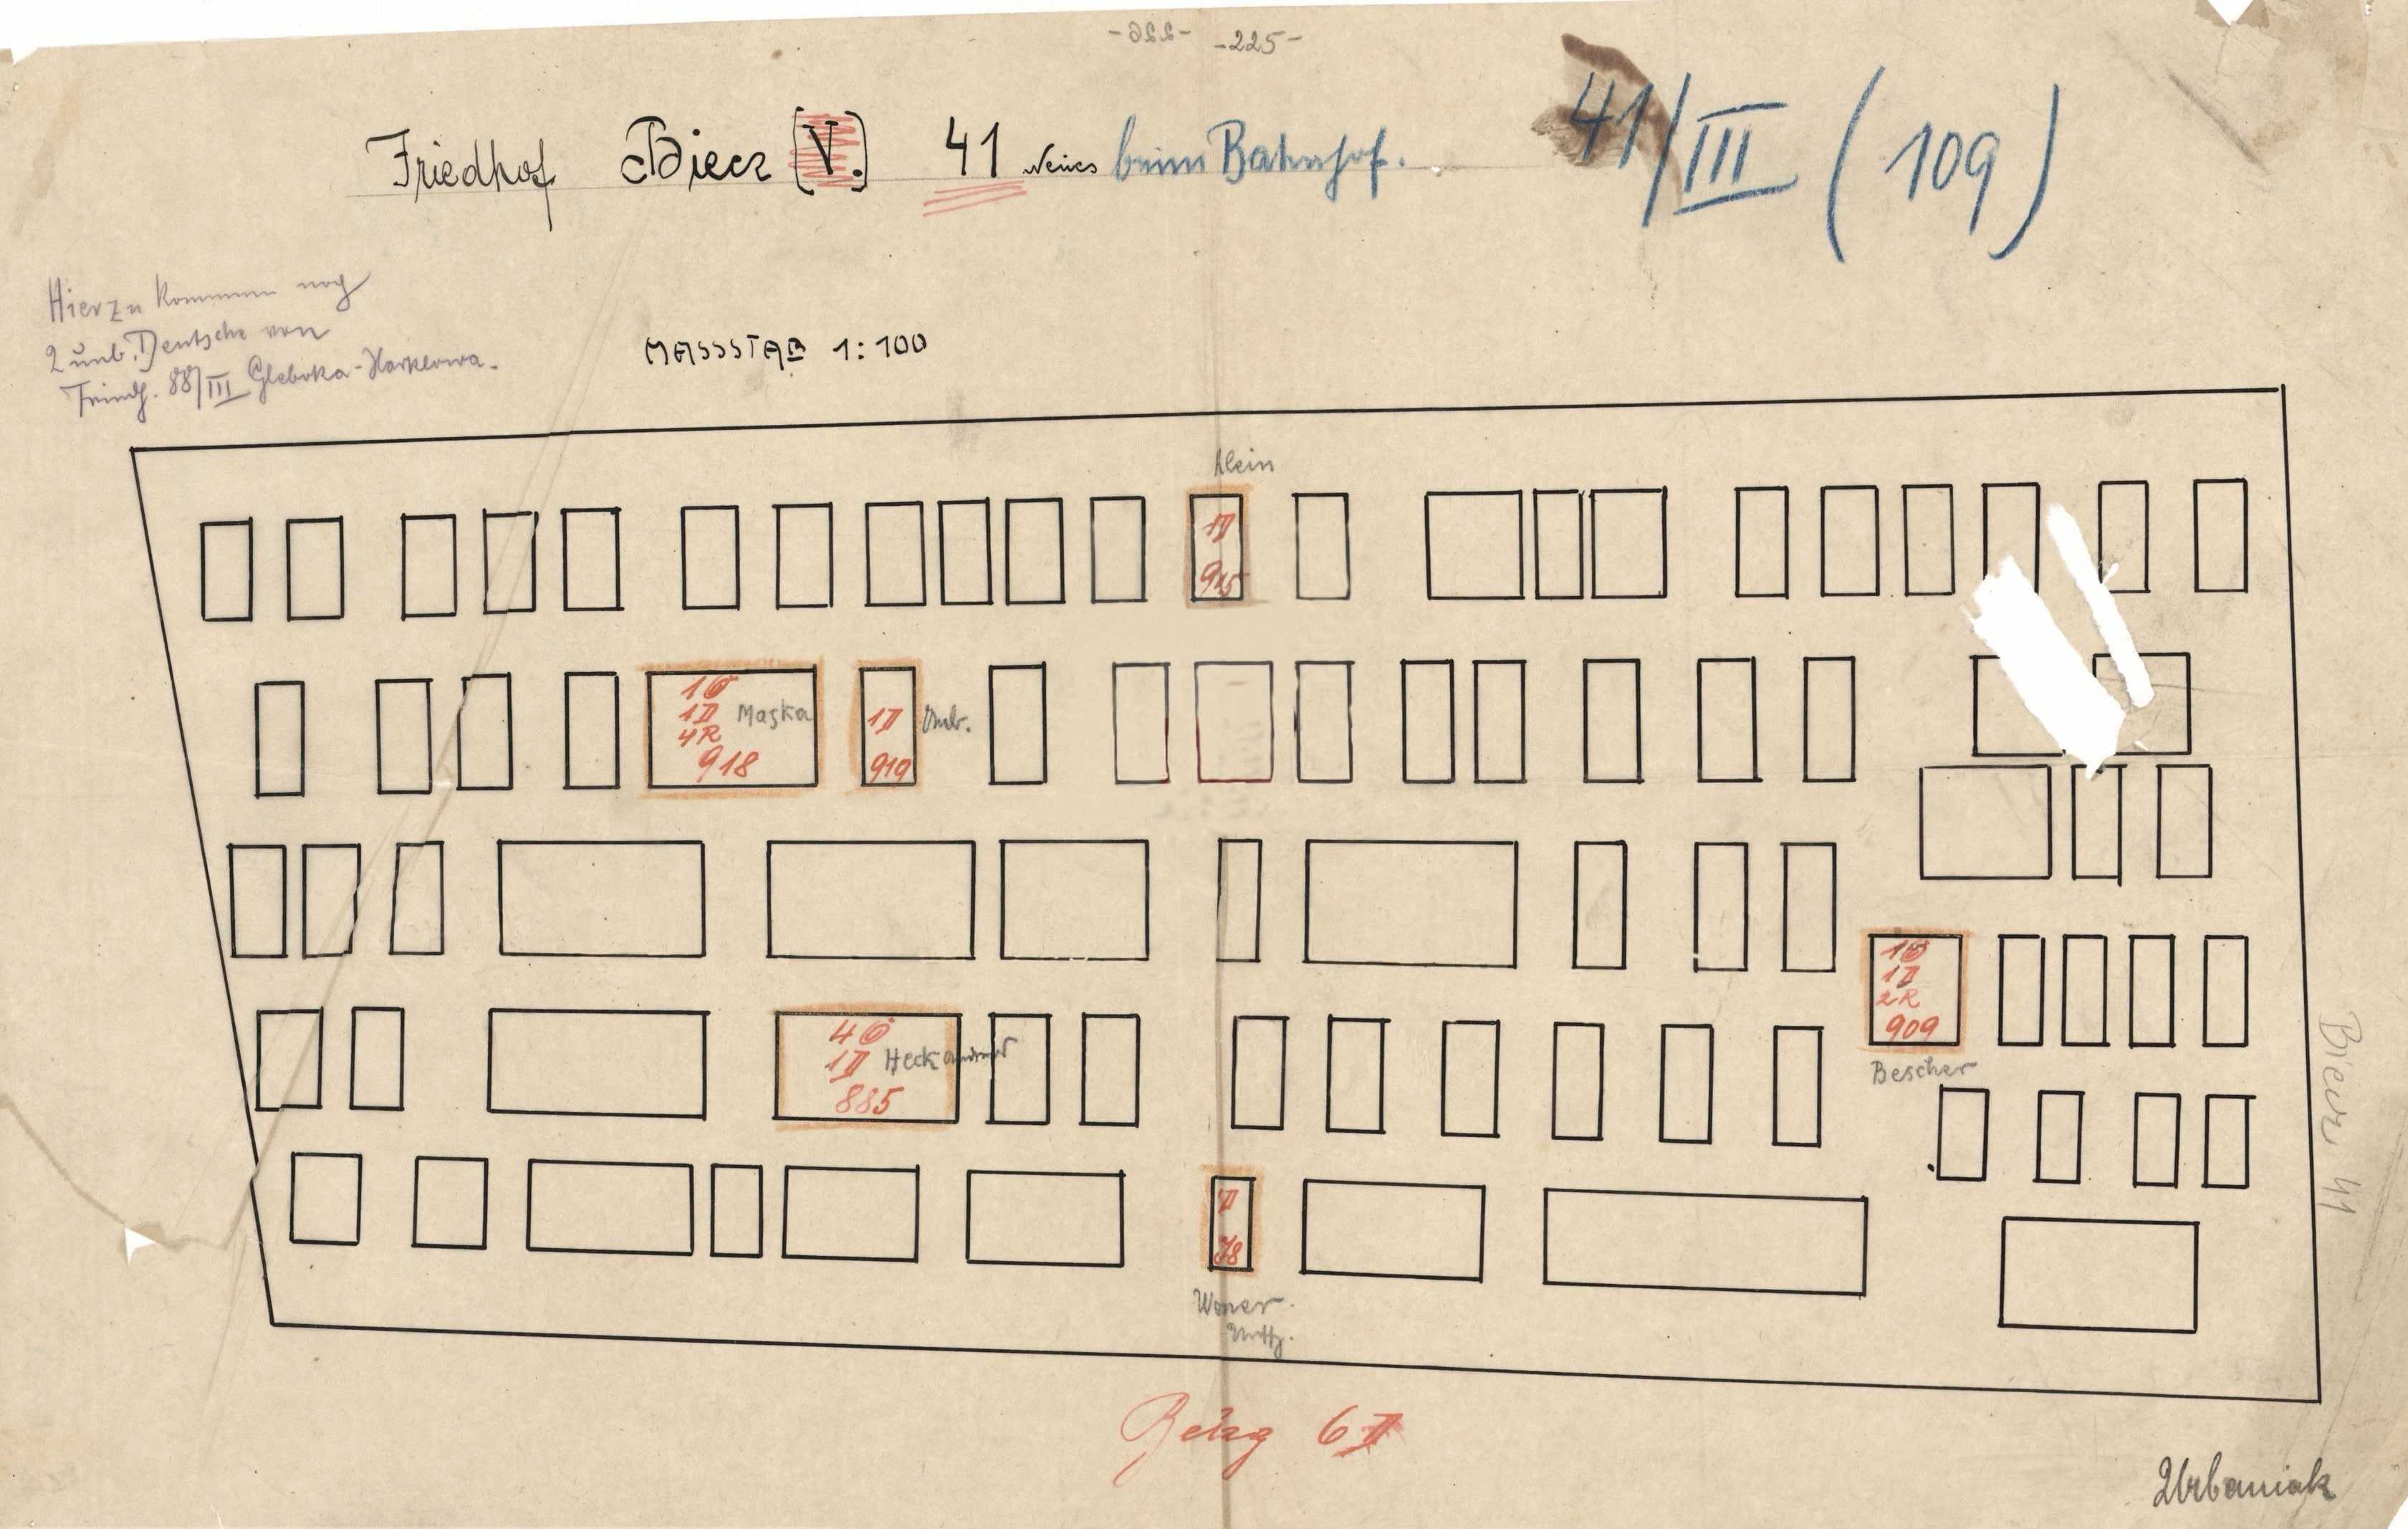 -226- -225-
Friedhof Biecz [V.] 41 Neues beim Bahnhof.
41/III (109)
Hierzu kommen noch
2 unb. Deutsche von
Friedh. 88/III Gleboka-Harklowa.
MASSSTAB 1:100
Klein
1D
915
1Ö
1D Maska
4R
918
1D Unb.
919
1Ö
1D
2R
909
Bescher
4Ö
1D
885
1D
78
Belag 6D
Biecz 41
Urbaniak